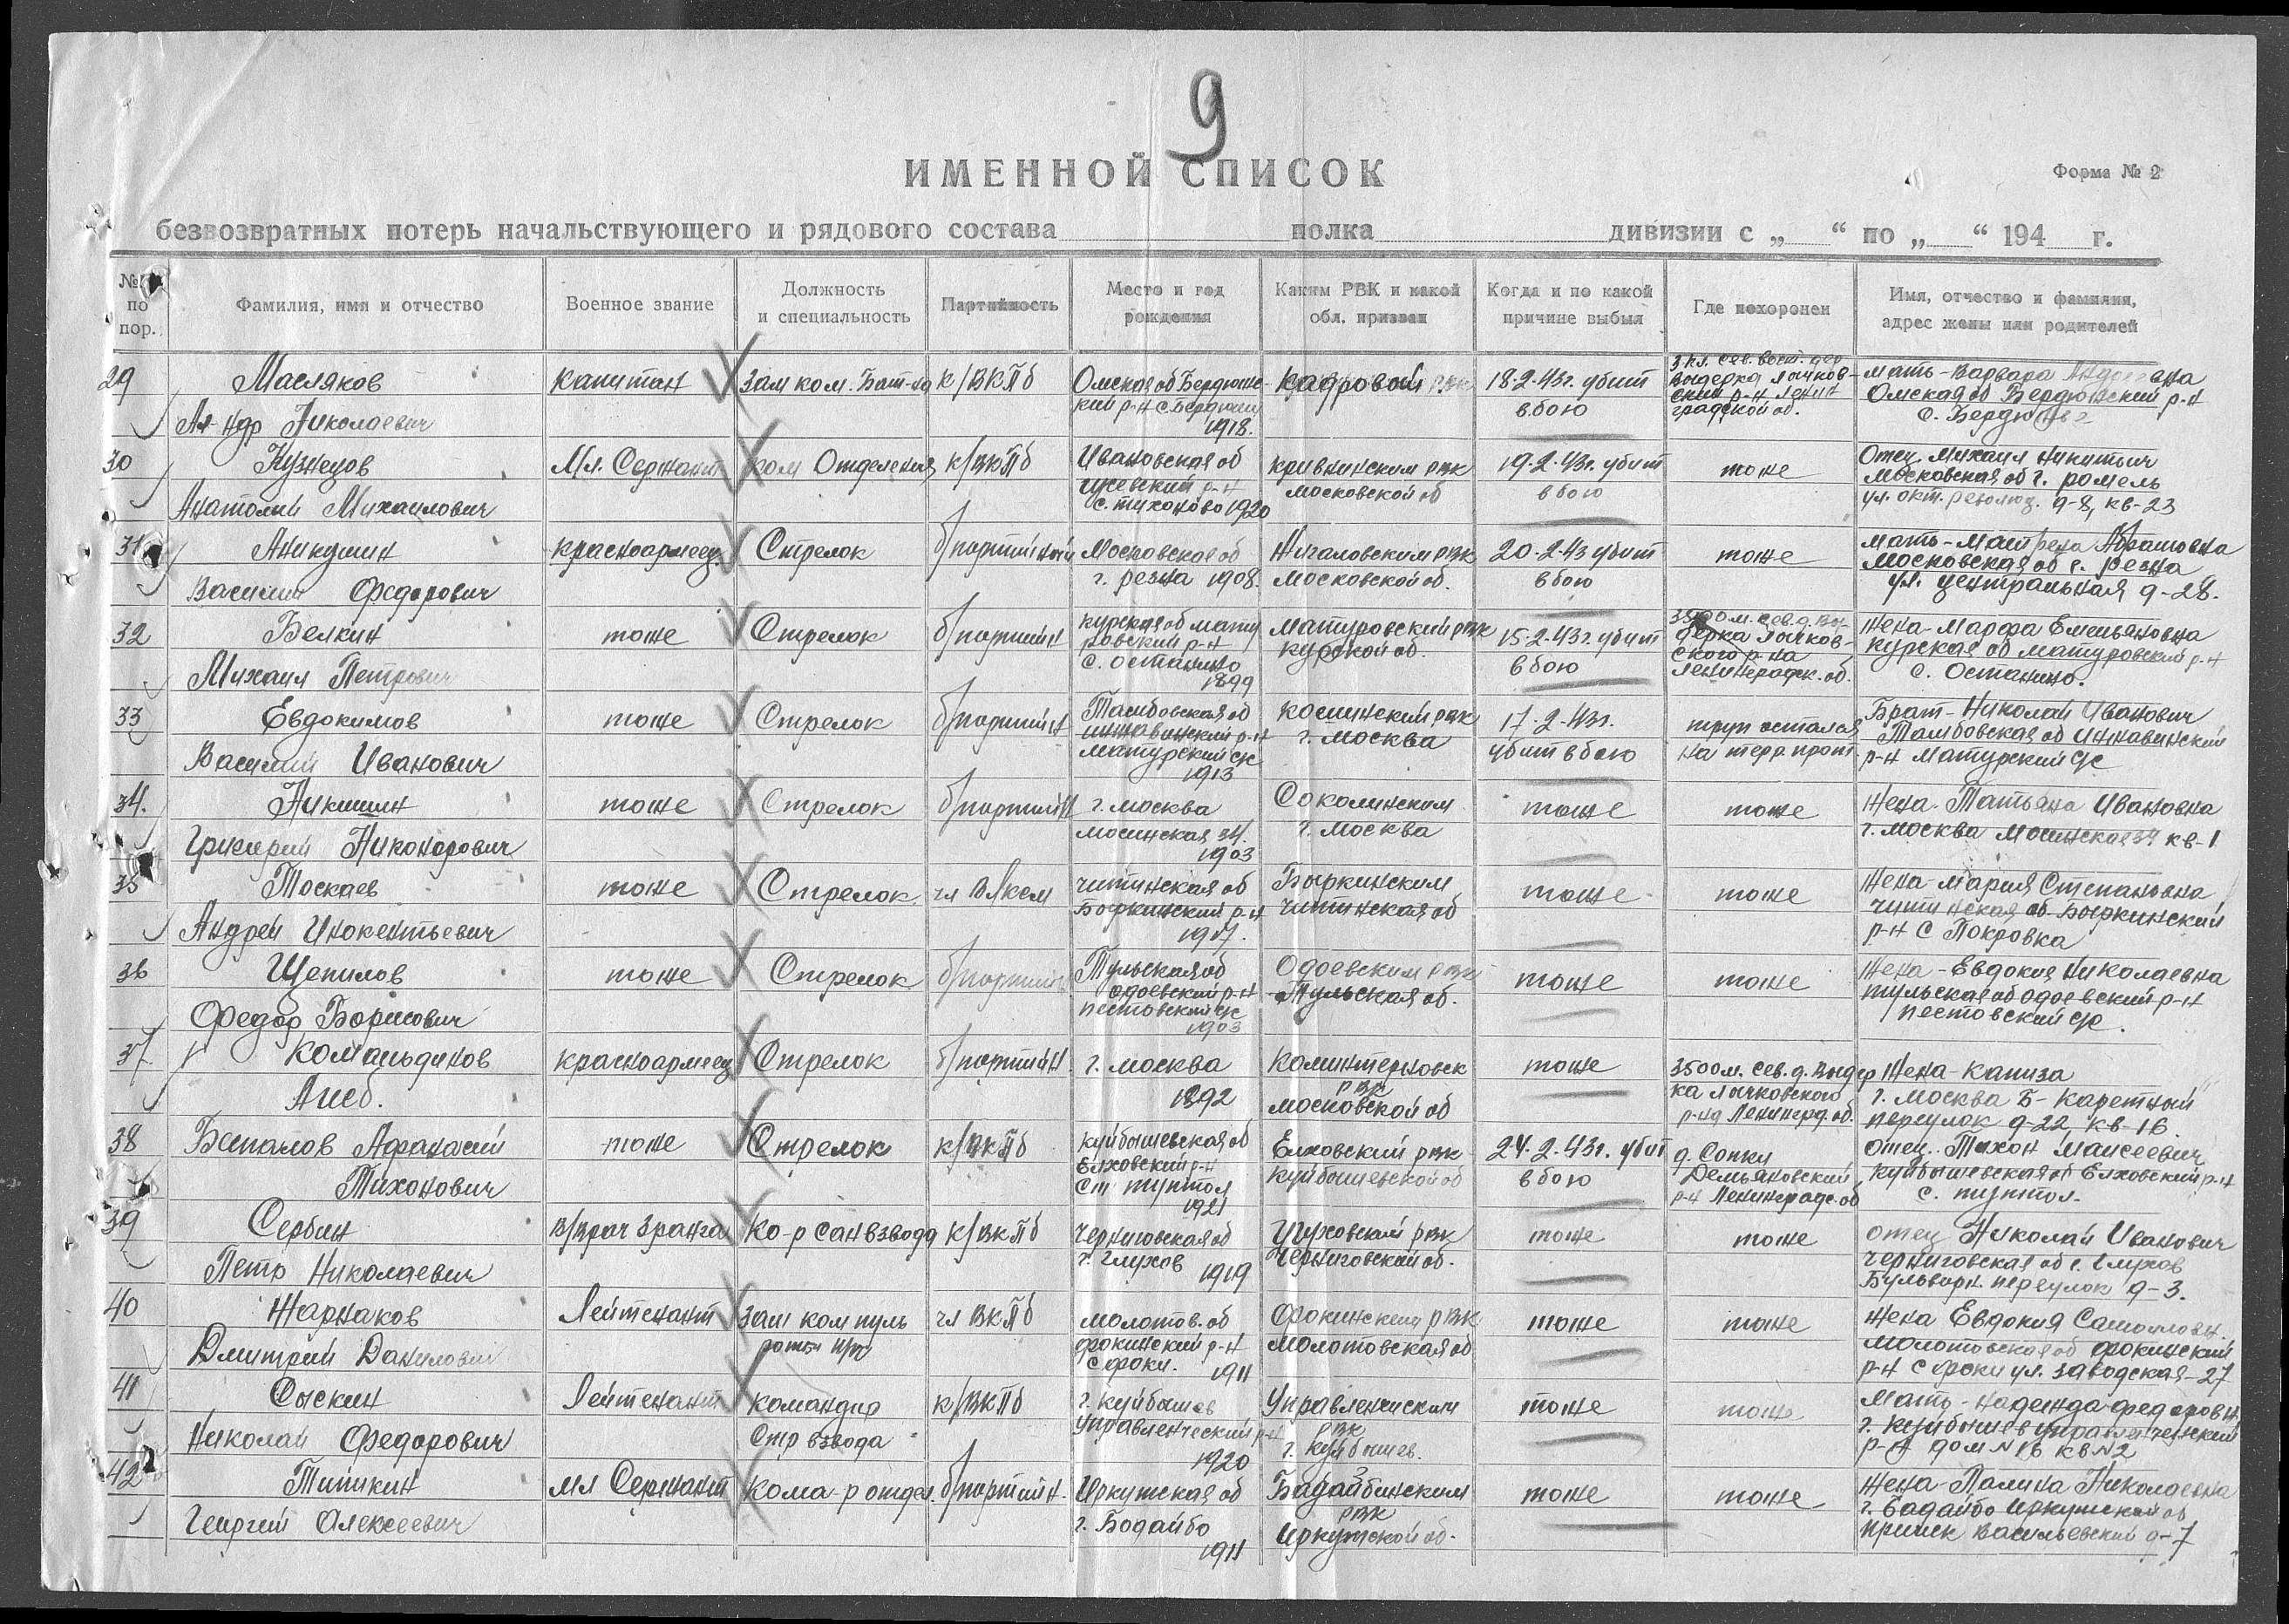 9
ИМЕННОЙ СПИСОК
Форма № 2
безвозвратных потерь начальствующего и рядового состава полка дивизии с „ “ по „ “ 194 г.
№ по пор.
Фамилия, имя и отчество
Военное звание
Должность и специальность
Партийность
Место и год рождения
Каким РВК и какой обл. призван
Когда и по какой причине выбыл
Где похоронен
Имя, отчество и фамилия, адрес жены или родителей
29 Масляков капитан зам ком. Бат-на к/ВКПб Омская об Бердюжс- кадровый 18.2.43г. убит 3 кл. сев. вост. дер мать-Варвара
Ал-ндр Николаевич кий р-н с. Бердюжи 1918. в бою Выдерка Лычков-ский р-н Ленинградской об. Омская об Бердюжский р-н с.
30 Кузнецов Мл. Сержант ком Отделения к/ВКПб Ивановская об рвк 19.2.43г. убит тоже Отец Михаил Никитич
Анатолий Михаилович р-н с. тихоново 1920 московской об в бою Московская об г. ул. окт. революц. д-8, кв-23
31 Аникушин красноармеец Стрелок б/партийный Московская об рвк 20.2.43 убит тоже мать-Матрена Абрамовна
Василий Федорович г. резна 1908. Московской об. в бою Московская об г. резна ул. центральная д-28.
32 Белкин тоже Стрелок б/партийн курская об мату Матуровский рвк 15.2.43г. убит 3500 м. сев. д. Вы- Жена-Марфа Емельяновна
Михаил Петрович ровский р-н с. останино 1899 курской об. в бою дерка Лычков-ского р-на Ленинградск. об. Курская об матуровский р-н с. Останино.
33 Евдокимов тоже Стрелок б/партийн Тамбовская об рвк 17.2.43г. труп остался Брат-Николай Иванович
Василий Иванович инжавинский р-н матурский с/с 1913 г. Москва убит в бою на терр. прот. Тамбовская об Инжавинский р-н Матурский с/с
34. Никишин тоже Стрелок б/партийн г. москва Соколинским тоже тоже Жена-Татьяна Ивановна
Григорий Никонорович 34. 1903 г. Москва г. Москва 34 кв-1
35 Тоскаев тоже Стрелок чл Влксм читинская об Быркинским тоже тоже Жена-Мария Степановна
Андрей Инокентьевич Быркинский р-н читинская об читинская об Быркинский р-н с Покровка
36 Щепилов тоже Стрелок б/партийн Тульская об Одоевским рвк тоже тоже Жена-Евдокия Николаевна
Федор Борисович одоевский р-н пестовский с/с 1903 Тульская об. тульская об одоевский р-н пестовский с/с.
37. Комальдинов красноармеец Стрелок б/партийн. г. москва Коминтерновск рвк тоже 3500 м. сев. д. Выдер Жена-
1892 московской об ка Лычковского р-на Ленингр. об. г. Москва Б-каретный переулок д-22, кв-16
38 Беспалов Афанасий тоже Стрелок к/ВКПб куйбышевская об Елховский рвк 24.2.43г. убит д. Сопки отец-Тихон Маисеевич
Тихонович Елховский р-н 1921 Куйбышевской об в бою Демьяновский р-н Ленинградс. об куйбышевская об Елховский р-н
39 Сербин В/врач 3 ранга Ко-р санвзвода к/ВКПб Черниговская об рвк тоже тоже отец Николай Иванович
Петр Николаевич г. глухов 1919 Черниговской об. черниговская об г. глухов Бульварн. переулок д-3.
40 Жарнаков Лейтенант зам ком пуль чл ВКПб молотов. об Фокинским РВК тоже тоже Жена Евдокия
Дмитрий Данилович роты фокинский р-н с фоки. 1911 Молотовская об Молотовская об фокинский р-н с фоки ул. заводская-27
41 Сыскин Лейтенант командир к/ВКПб г. куйбышев Управленческим рвк тоже тоже Мать-Надежда федоровн
Николай Федорович Стр взвода управленческий р-н 1920 г. куйбышев. г. куйбышев управленческий р-н дом N 16 кв N2
42 Тишкин мл Сержант кома-р отдел. б/партийн. Иркутская об рвк тоже тоже Жена-Полина Николаевна
Георгий Алексеевич г. Бодайбо 1911 Иркутской об. г. Бадайбо Иркутской об прииск васильевский д-7